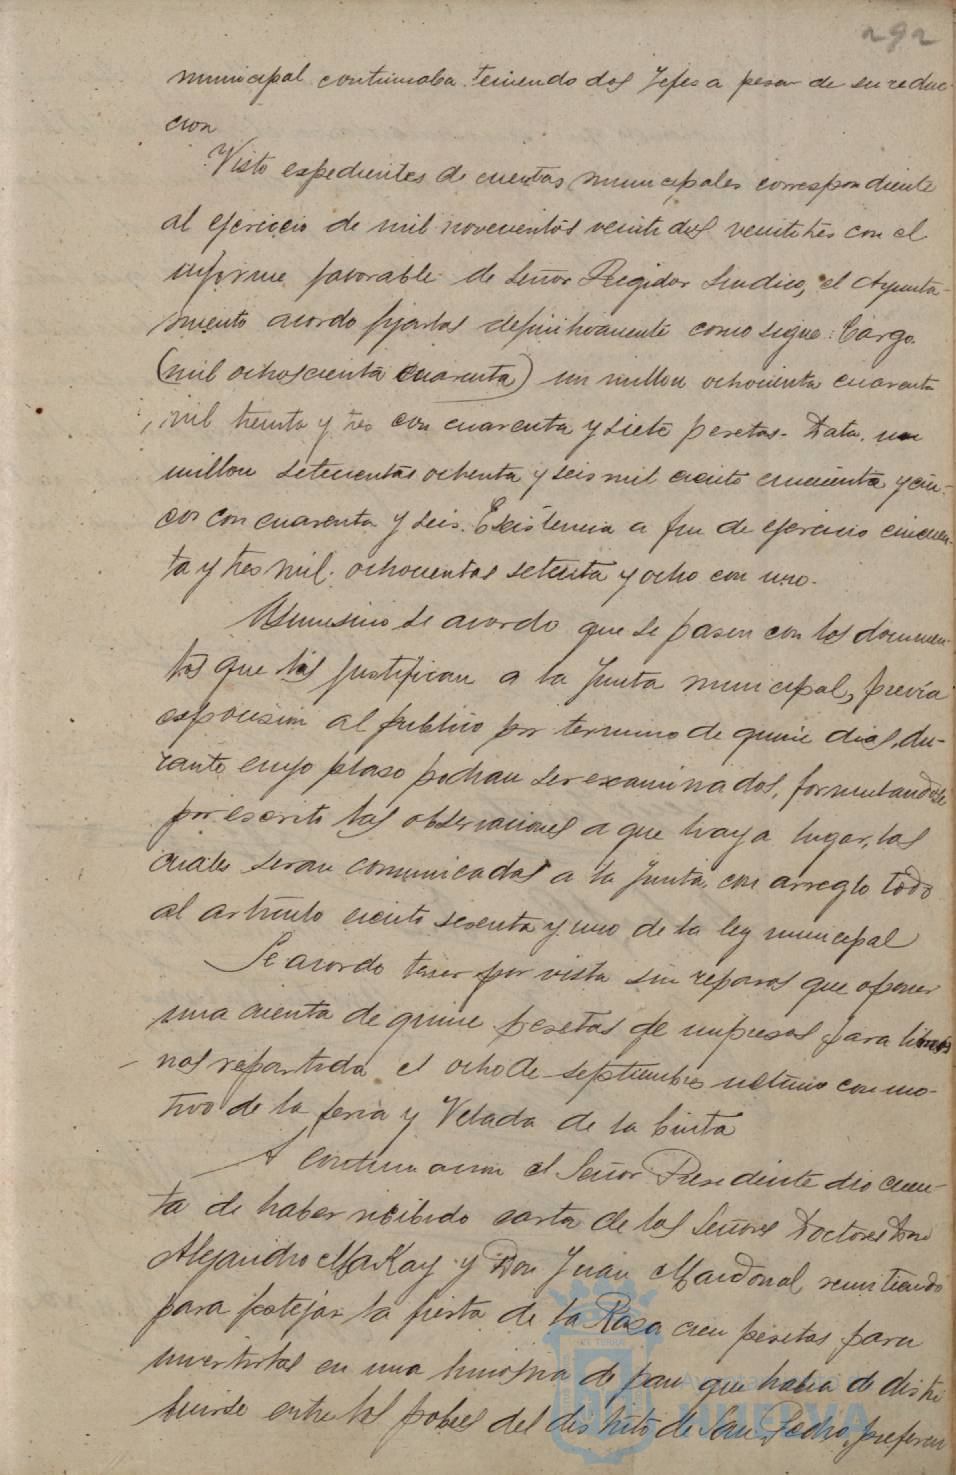 292
municipal continuaba teniendo dos Jefes a pesar de su reduc-
cion
Visto expedientes de cuentas municipales correspondiente
al ejercicio de mil novecientos veinte dos veintitres con el
informe favorable de Señor Regidor Sindico, el Ayunta-
miento acordo fijarlas definitivamente como sigue: Cargo.
(mil ochoscienta cuarenta) un millon ochocienta cuarenta
mil treinta y tres con cuarenta y siete pesetas. Data. un
millon setecientas ochenta y seis mil ciento cincuenta y cin-
co con cuarenta y seis. Existencia a fin de ejercicio cincuen-
ta y tres mil. ochocientas setenta y ocho con uno.
Asimismo se acordo que se pasen con los documen-
tos que las justifican a la Junta municipal, previa
exposicion al publico por termino de quince dias, du-
rante cuyo plaso podran ser examinados, formulandose
por escrito las observaciones a que haya lugar, las
cuales seran comunicadas a la Junta, con arreglo todo
al articulo ciento sesenta y uno de la ley municipal
Se acordo tener por vista sin reparos que oponer
una cuenta de quince pesetas de impresos para
nos repartida el ocho de septiembre ultimo con mo-
tivo de la feria y Velada de la Cinta
A continuacion el Señor Presidente dio cuen-
ta de haber recibido carta de los Señores Doctores Don
Alejandro MaKay y Don Juan Macdonal remitiendo
para festejar la fiesta de la Raza cien pesetas para
invertirlas en una limosna de pan que habia de distri
buirse entre los pobres del distrito de San Pedro, preferen
Ayuntamiento de
HUELVA